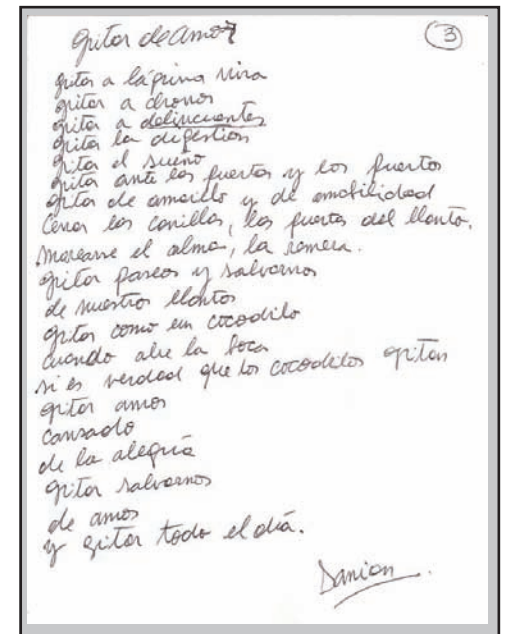 Gritar de amor
3
gritar a lágrima viva
gritar a chorros
gritar a delincuentes
gritar la digestión
gritar el sueño
gritar ante las puertas y los puertos
gritar de amarillo y de amabilidad
Cerrar las canillas, las puertas del llanto.
Mojarme el alma, la remera.
gritar paseos y salvarnos
de nuestros llantos
gritar como un cocodrilo
cuando abre la boca
si es verdad que los cocodrilos gritan
gritar amor
cansado
de la alegría
gritar salvarnos
de amor
y gritar todo el día.
Damian